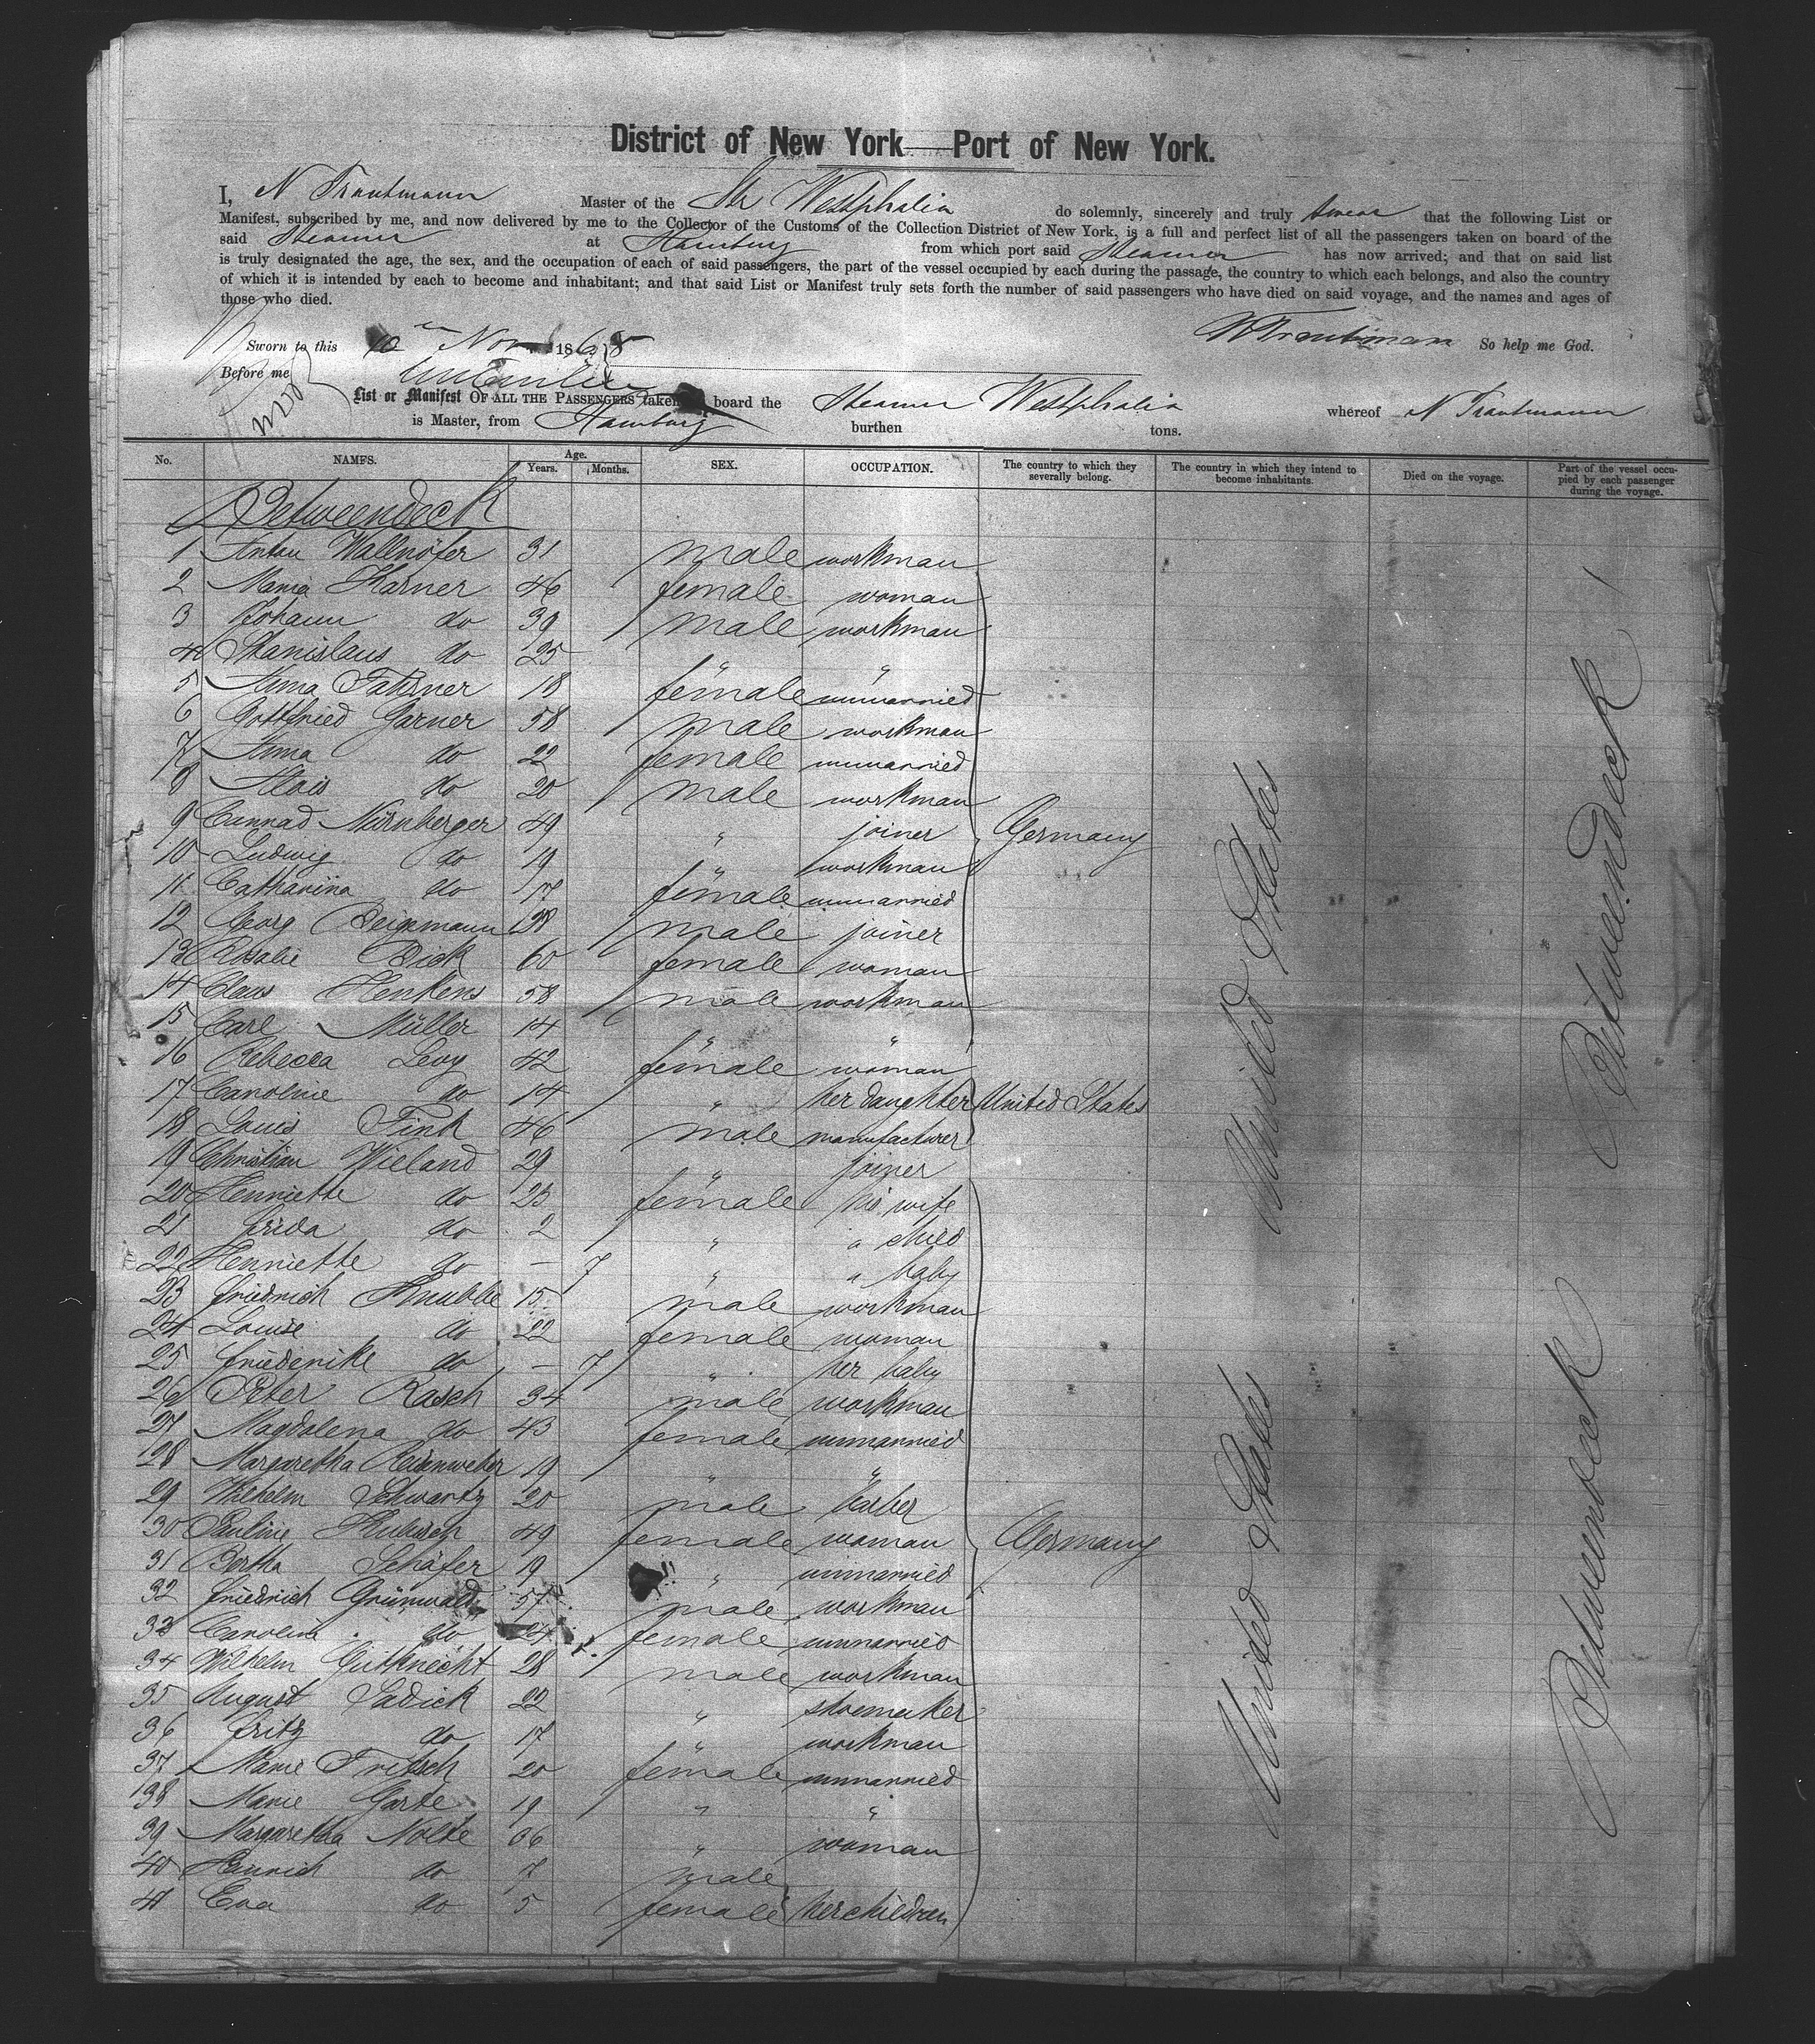 District of New York—Port of New York.
I, N Trautmann Master of the Str Westphalia do solemnly, sincerely and truly swear that the following List or
Manifest, subscribed by me, and now delivered by me to the Collector of the Customs of the Collection District of New York, is a full and perfect list of all the passengers taken on board of the
said Steamer at Hamburg from which port said Steamer has now arrived; and that on said list
is truly designated the age, the sex, and the occupation of each of said passengers, the part of the vessel occupied by each during the passage, the country to which each belongs, and also the country
of which it is intended by each to become and inhabitant; and that said List or Manifest truly sets forth the number of said passengers who have died on said voyage, and the names and ages of
those who died.
Sworn to this 10th Nov 1868 N Trautmann So help me God.
Before me
List or Manifest OF ALL THE PASSENGERS taken board the Steamer Westphalia whereof N Trautmann
is Master, from Hamburg burthen tons.
No. NAMES. Age. Years. Months. SEX. OCCUPATION. The country to which they severally belong. The country in which they intend to become inhabitants. Died on the voyage. Part of the vessel occupied by each passenger during the voyage.
Betweendeck
1 Anton Wallnöfer 31 male workman
2 Maria Karner 46 female woman
3 Johann do 39 male workman
4 Stanislaus do 25 " "
5 Anna 18 female unmarried
6 Gottfried Garner 58 male workman
7 Anna do 22 female unmarried
8 Alois do 20 male workman
9 Cunrad Nürnberger 49 " joiner Germany
10 Ludwig do 19 " workman
11 Catharina do 17 female unmarried
12 Georg 28 male joiner
13 Rosalie Dick 60 female woman
14 Claus Henkens 58 male workman
15 Carl Müller 14 " "
16 Rebecca Levy 42 female woman
17 Caroline do 14 " her daughter United States
18 Louis Fink 46 male manufacturer
19 Christian Wieland 29 " joiner
20 Henriette do 23 female his wife
21 Frida do 2 " a child
22 Henriette do – 7 " a baby
23 Friedrich Knubbe 15 male workman
24 Louise do 22 female woman
25 Friederike do – 7 " her baby
26 Peter Rasch 34 male workman
27 Magdalena do 43 female unmarried
28 Margaretha 19 " "
29 Wilhelm Schwartz 20 male barber
30 Pauline 49 female woman Germany
31 Bertha Schäfer 19 " unmarried
32 Friedrich Grünwald 57 male workman
33 Caroline do 24 female unmarried
34 Wilhelm Gutknecht 28 male workman
35 August Sadick 22 " shoemaker
36 Fritz do 17 " workman
37 Marie Fritsch 20 female unmarried
38 Marie Garte 19 " "
39 Margaretha Nolte 36 " woman
40 Heinrich do 7 male
41 Eva do 5 female her children
United States
United States
Betweendeck
Betweendeck